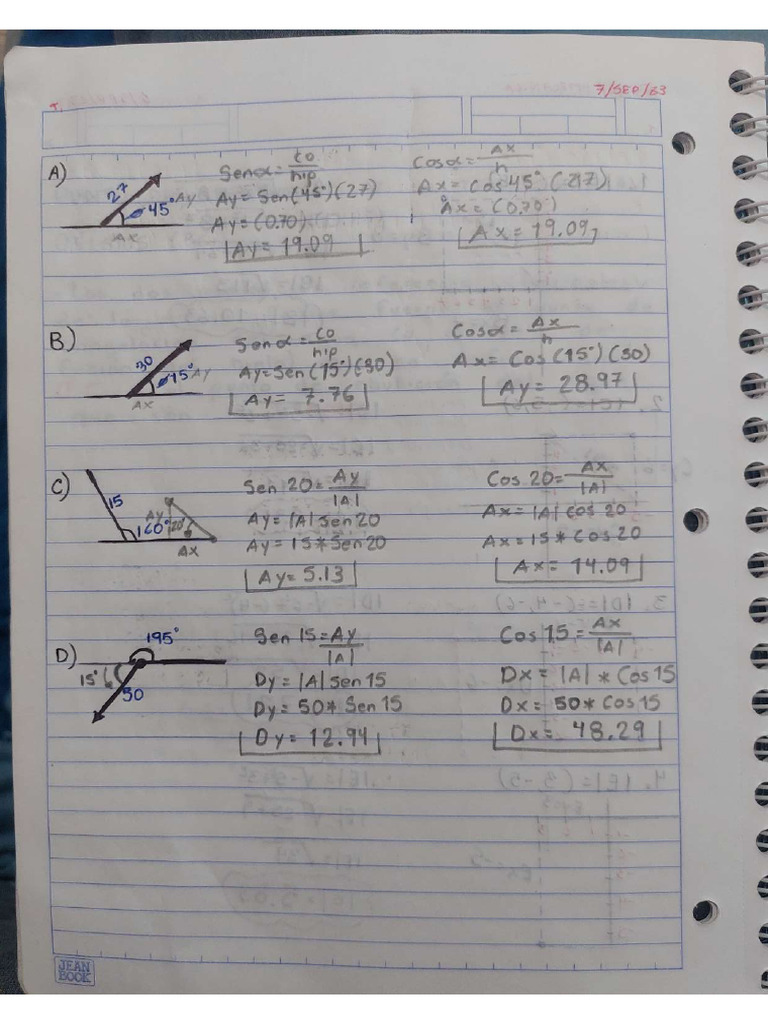 7/SEP/23
A)
27
45°
Ay
Ax
Senα = co/hip
Ay = Sen(45°)(27)
Ay = (0.70)
Ay = 19.09
Cosα = Ax/h
Ax = Cos 45° (27)
Ax = (0.70)
Ax = 19.09
B)
30
15°
Ay
Ax
Senα = co/hip
Ay = Sen(15°)(30)
Ay = 7.76
Cosα = Ax/h
Ax = Cos(15°)(30)
Ay = 28.97
C)
15
160°
Ay
20°
Ax
Sen 20 = Ay/|A|
Ay = |A| Sen 20
Ay = 15 * Sen 20
Ay = 5.13
Cos 20 = Ax/|A|
Ax = |A| Cos 20
Ax = 15 * Cos 20
Ax = 14.09
D)
195°
15°
50
Sen 15 = Ay/|A|
Dy = |A| Sen 15
Dy = 50 * Sen 15
Dy = 12.94
Cos 15 = Ax/|A|
Dx = |A| * Cos 15
Dx = 50 * Cos 15
Dx = 48.29
JEAN
BOOK